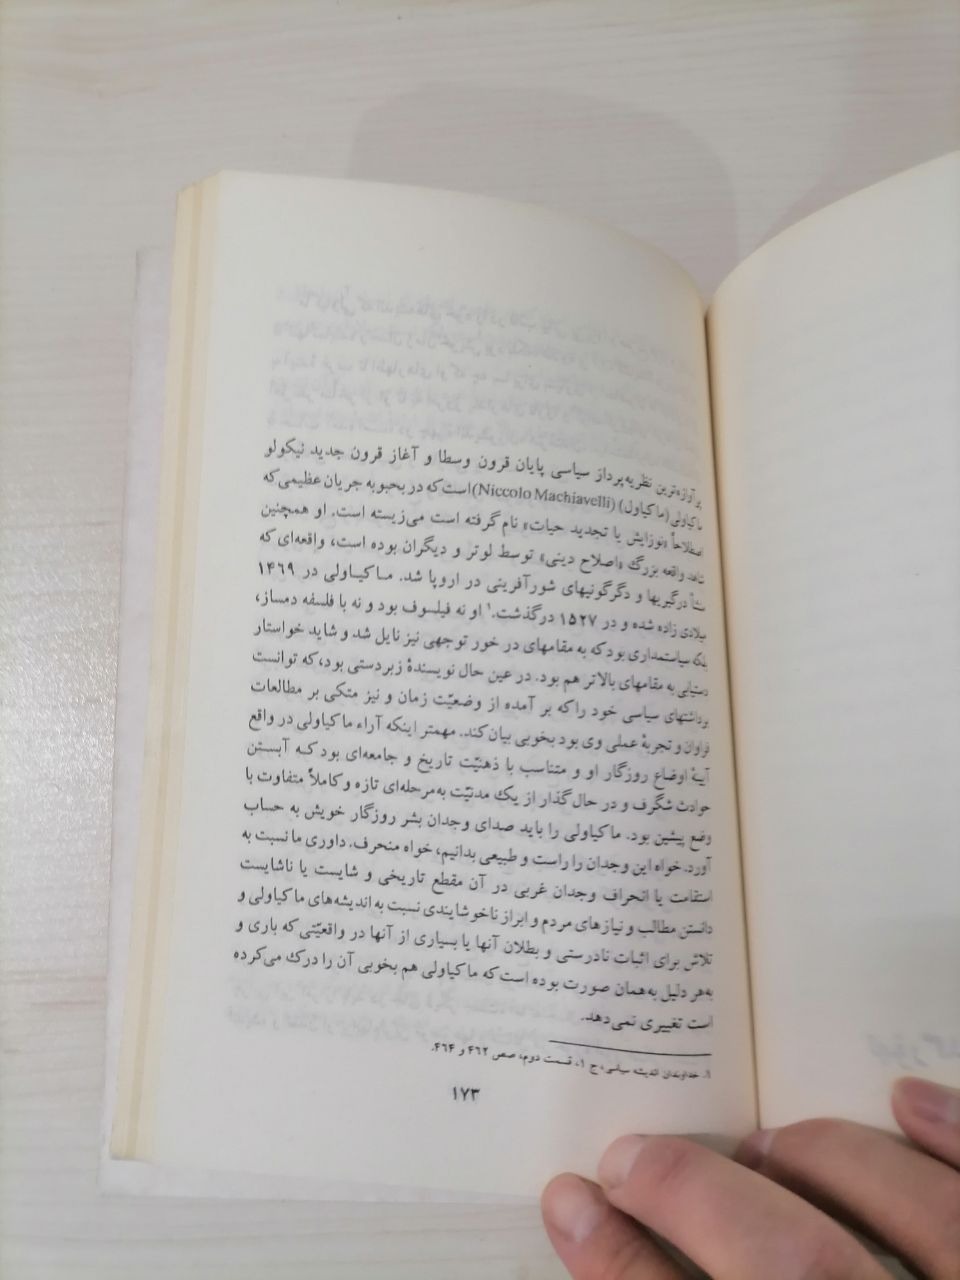 پر آوازه‌ترین نظریه‌پرداز سیاسی پایان قرون وسطا و آغاز قرون جدید نیکولو
ماکیاولی (ماکیاول) (Niccolo Machiavelli) است که در بحبوبه جریان عظیمی که
اصطلاحاً «نوزایش یا تجدید حیات» نام گرفته است می‌زیسته است. او همچنین
شاهد واقعه بزرگ «اصلاح دینی» توسط لوتر و دیگران بوده است، واقعه‌ای که
منشأ درگیریها و دگرگونیهای شورآفرینی در اروپا شد. ماکیاولی در ۱۴۶۹
میلادی زاده شده و در ۱۵۲۷ درگذشت.۱ او نه فیلسوف بود و نه با فلسفه دمساز،
بلکه سیاستمداری بود که به مقامهای در خور توجهی نیز نایل شد و شاید خواستار
دستیابی به مقامهای بالاتر هم بود. در عین حال نویسندهٔ زبردستی بود، که توانست
برداشتهای سیاسی خود را که بر آمده از وضعیّت زمان و نیز متکی بر مطالعات
فراوان و تجربهٔ عملی وی بود بخوبی بیان کند. مهمتر اینکه آراء ماکیاولی در واقع
آیینهٔ اوضاع روزگار او و متناسب با ذهنیّت تاریخ و جامعه‌ای بود که آبستن
حوادث شگرف و در حال گذار از یک مدنیّت به مرحله‌ای تازه و کاملاً متفاوت با
وضع پیشین بود. ماکیاولی را باید صدای وجدان بشر روزگار خویش به حساب
آورد. خواه این وجدان را راست و طبیعی بدانیم، خواه منحرف. داوری ما نسبت به
استقامت یا انحراف وجدان غربی در آن مقطع تاریخی و شایست یا ناشایست
دانستن مطالب و نیازهای مردم و ابراز ناخوشایندی نسبت به اندیشه‌های ماکیاولی و
تلاش برای اثبات نادرستی و بطلان آنها یا بسیاری از آنها در واقعیّتی که باری و
به‌هر دلیل به‌همان صورت بوده است که ماکیاولی هم بخوبی آن را درک می‌کرده
است تغییری نمی‌دهد.
۱. خداوندان اندیشه سیاسی، ج ۱، قسمت دوم، صص ۴۶۲ و ۴۶۴.
۱۷۳